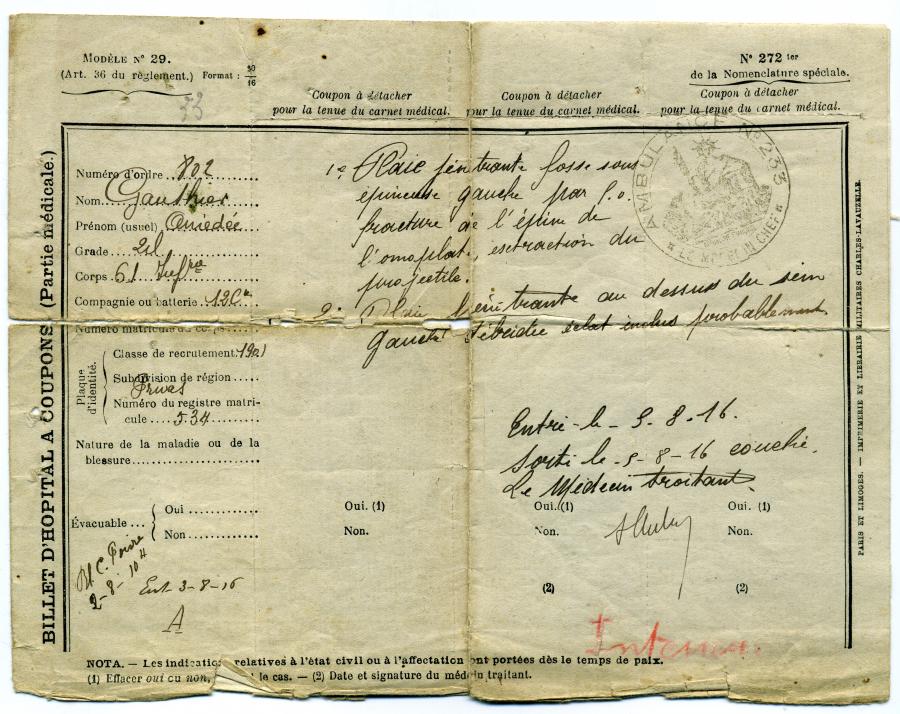 MODÈLE N° 29.
(Art. 36 du règlement.) Format : 30/16
N° 272 ter
de la Nomenclature spéciale.
73
Coupon à détacher
pour la tenue du carnet médical.
Coupon à détacher
pour la tenue du carnet médical.
Coupon à détacher
pour la tenue du carnet médical.
BILLET D'HOPITAL A COUPONS (Partie médicale.)
Numéro d'ordre 802
Nom Gauthier
Prénom (usuel) Amédée
Grade 2d
Corps 61 Infrie
Compagnie ou batterie 12 Cie
Numéro matricule du corps
Plaque d'identité.
Classe de recrutement 1901
Subdivision de région
Privas
Numéro du registre matri-
cule 534
Nature de la maladie ou de la
blessure
Évacuable
Oui
Non
1° Plaie pénétrante fosse sous
épineuse gauche par E.O.
fracture de l'épine de
l'omoplate, extraction du
projectile.
2° Plaie pénétrante au dessus du sein
gauche éclat inclus probablement
AMBULANCE N° 233
LE MÉDECIN CHEF
Entré le 5-8-16.
Sorti le 5-8-16 couché.
Le Médecin traitant
Oui. (1)
Non.
Oui. (1)
Non.
Oui. (1)
Non.
(2)
(2)
2-8-
Ent 3-8-16
A
NOTA. — Les indications relatives à l'état civil ou à l'affectation sont portées dès le temps de paix.
(1) Effacer oui ou non, le cas. — (2) Date et signature du médecin traitant.
PARIS ET LIMOGES. — IMPRIMERIE ET LIBRAIRIE MILITAIRES CHARLES-LAVAUZELLE.